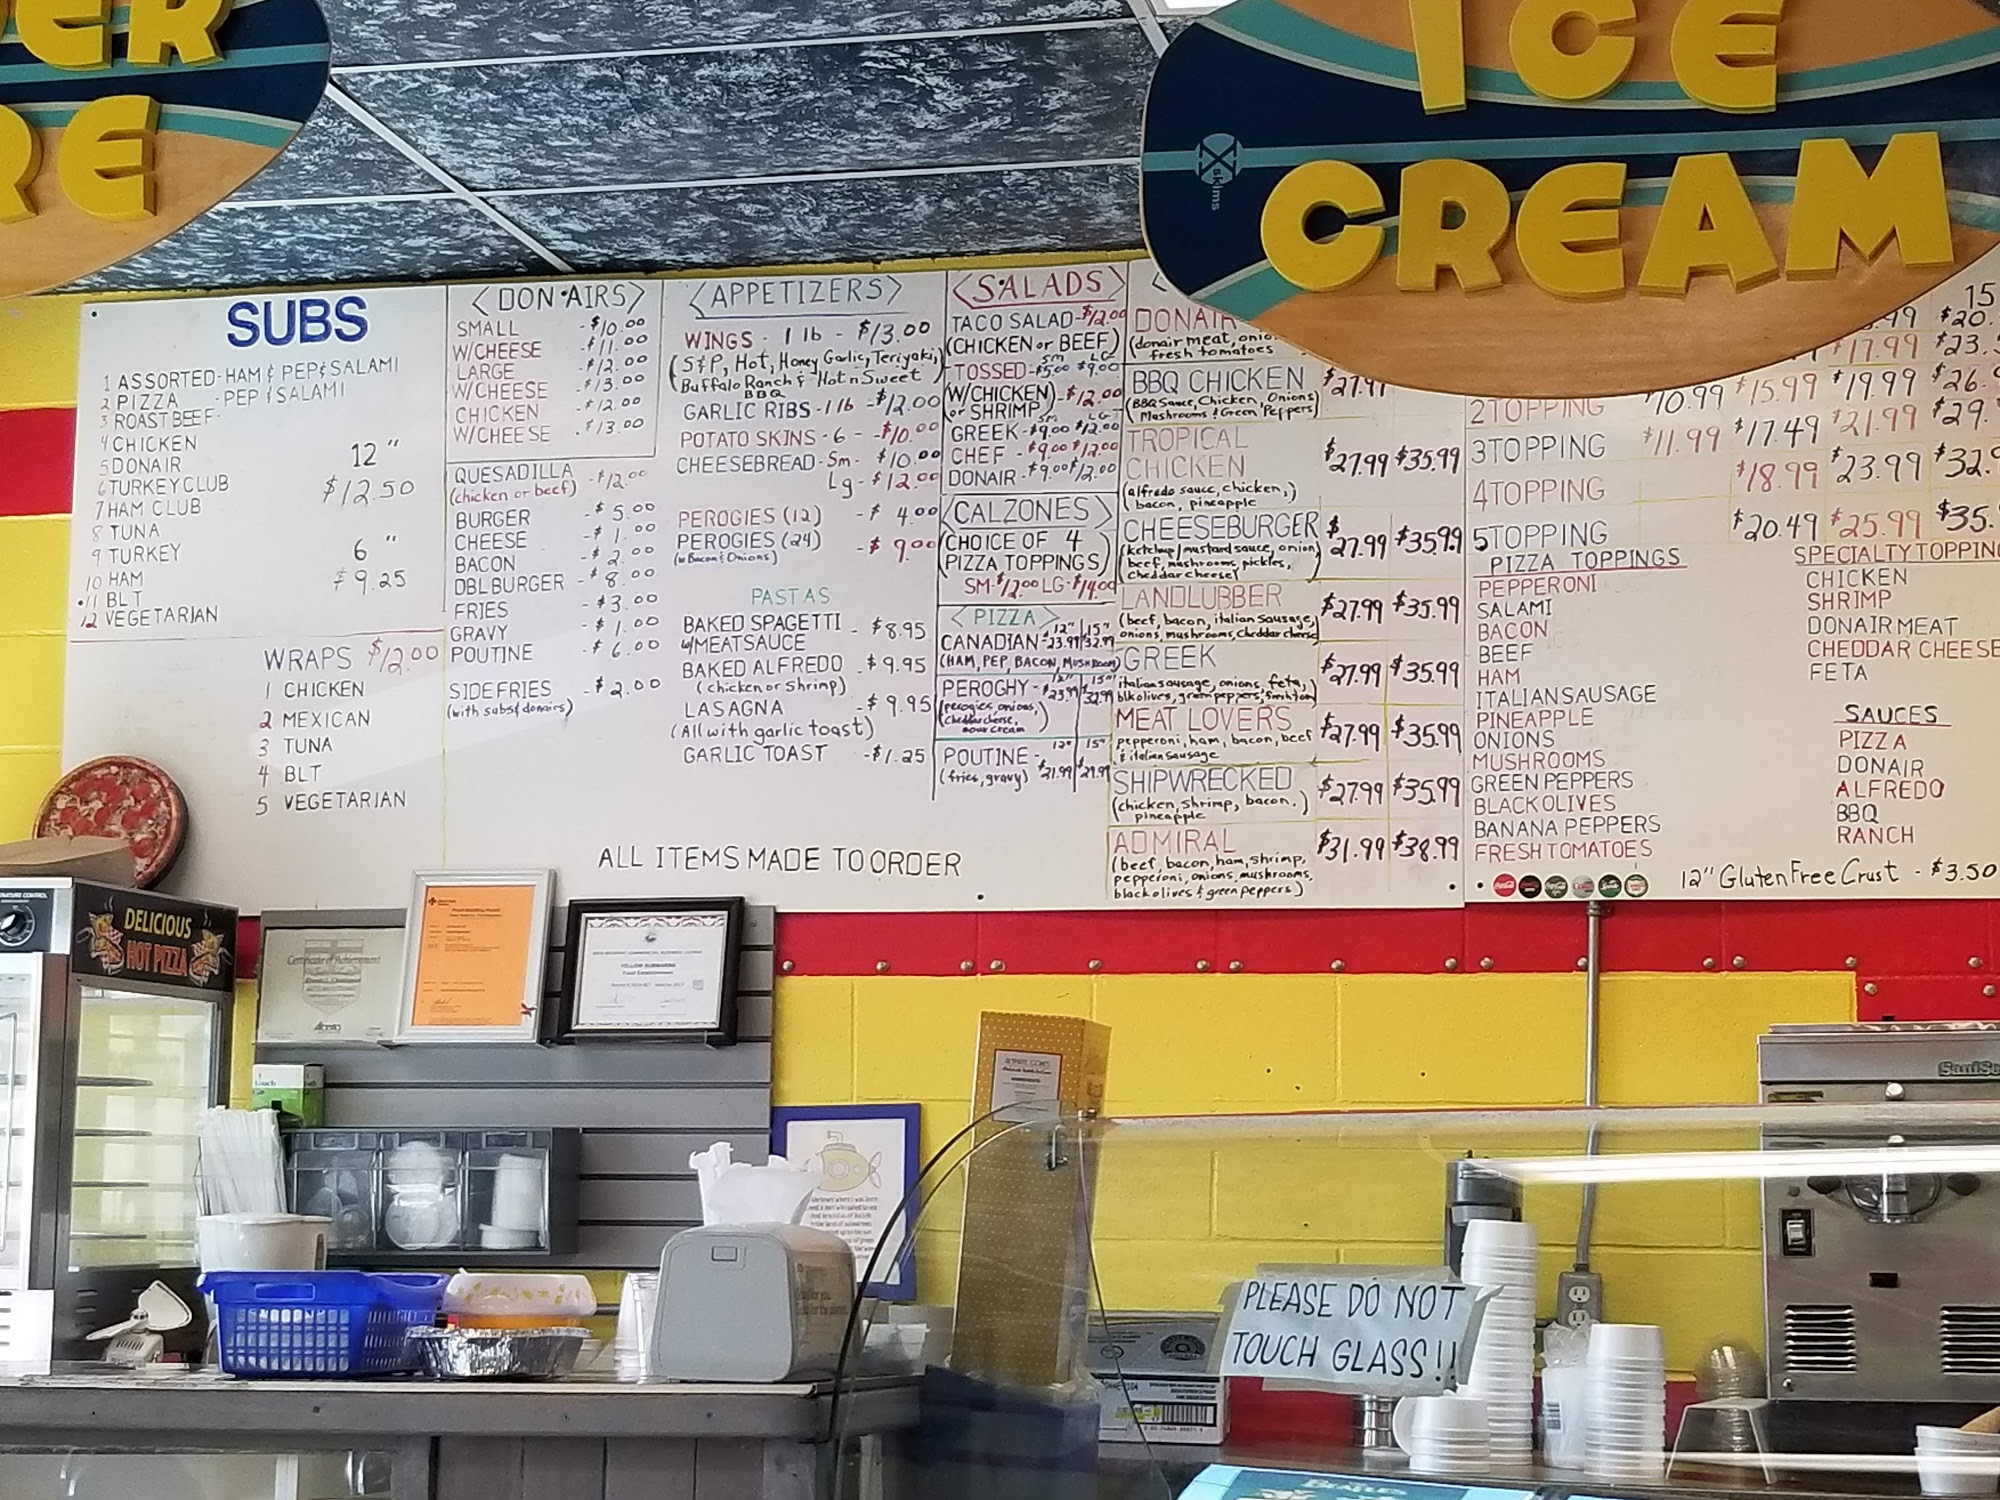 ER
RE
ICE
CREAM
skims
SUBS
1 ASSORTED - HAM & PEP & SALAMI
2 PIZZA - PEP & SALAMI
3 ROAST BEEF -
4 CHICKEN
5 DONAIR
6 TURKEY CLUB
7 HAM CLUB
8 TUNA
9 TURKEY
10 HAM
11 BLT
12 VEGETARIAN
12"
$12.50
6"
$9.25
WRAPS $12.00
1 CHICKEN
2 MEXICAN
3 TUNA
4 BLT
5 VEGETARIAN
<DONAIRS>
SMALL - $10.00
W/CHEESE - $11.00
LARGE - $12.00
W/CHEESE - $13.00
CHICKEN - $12.00
W/CHEESE - $13.00
QUESADILLA - $12.00
(chicken or beef)
BURGER - $5.00
CHEESE - $1.00
BACON - $2.00
DBL BURGER - $8.00
FRIES - $3.00
GRAVY - $1.00
POUTINE - $6.00
SIDE FRIES - $2.00
(with subs & donairs)
<APPETIZERS>
WINGS - 1 lb - $13.00
(S&P, Hot, Honey Garlic, Teriyaki,
Buffalo Ranch & Hot n Sweet)
BBQ
GARLIC RIBS - 1 lb - $12.00
POTATO SKINS - 6 - $10.00
CHEESEBREAD - Sm - $10.00
Lg - $12.00
PEROGIES (12) - $4.00
PEROGIES (24) - $9.00
(w Bacon & Onions)
PASTAS
BAKED SPAGETTI - $8.95
w/MEATSAUCE
BAKED ALFREDO - $9.95
(chicken or shrimp)
LASAGNA - $9.95
(All with garlic toast)
GARLIC TOAST - $1.25
ALL ITEMS MADE TO ORDER
<SALADS>
TACO SALAD - $12.00
(CHICKEN or BEEF)
SM LG
TOSSED - $5.00 $9.00
(W/CHICKEN) - $12.00
or SHRIMP
SM LG
GREEK - $9.00 $12.00
CHEF - $9.00 $12.00
DONAIR - $9.00 $12.00
<CALZONES>
(CHOICE OF 4
PIZZA TOPPINGS)
SM - $12.00 LG - $14.00
<PIZZA>
12" 15"
CANADIAN - $23.99 $32.99
(HAM, PEP, BACON, MUSHROOM)
12" 15"
PEROGHY - $23.99 $32.99
(perogies, onions,
cheddar cheese,
sour cream)
12" 15"
POUTINE - $21.99 $29.99
(fries, gravy)
DONAIR
(donair meat, onio
fresh tomatoes
BBQ CHICKEN $27.99
(BBQ Sauce, Chicken, Onions
Mushrooms & Green Peppers)
TROPICAL
CHICKEN $27.99 $35.99
(alfredo sauce, chicken,
bacon, pineapple)
CHEESEBURGER $27.99 $35.99
(ketchup/mustard sauce, onion,
beef, mushrooms, pickles,
cheddar cheese)
LANDLUBBER $27.99 $35.99
(beef, bacon, italian sausage,
onions, mushrooms, cheddar cheese)
GREEK $27.99 $35.99
italian sausage, onions, feta,
blk olives, green peppers, fresh tom
MEAT LOVERS $27.99 $35.99
pepperoni, ham, bacon, beef
& italian sausage
SHIPWRECKED $27.99 $35.99
(chicken, shrimp, bacon,
pineapple)
ADMIRAL $31.99 $38.99
(beef, bacon, ham, shrimp,
pepperoni, onions, mushrooms,
black olives & green peppers)
15
.99 $20.
$17.99 $23.
2 TOPPING $10.99 $15.99 $19.99 $26.
3 TOPPING $11.99 $17.49 $21.99 $29.
4 TOPPING $18.99 $23.99 $32.
5 TOPPING $20.49 $25.99 $35.
PIZZA TOPPINGS
PEPPERONI
SALAMI
BACON
BEEF
HAM
ITALIAN SAUSAGE
PINEAPPLE
ONIONS
MUSHROOMS
GREEN PEPPERS
BLACK OLIVES
BANANA PEPPERS
FRESH TOMATOES
SPECIALTY TOPPING
CHICKEN
SHRIMP
DONAIR MEAT
CHEDDAR CHEESE
FETA
SAUCES
PIZZA
DONAIR
ALFREDO
BBQ
RANCH
12" Gluten Free Crust - $3.50
DELICIOUS
HOT PIZZA
Certificate of Achievement
Alberta
YELLOW SUBMARINE
Food Establishment
PLEASE DO NOT
TOUCH GLASS!!